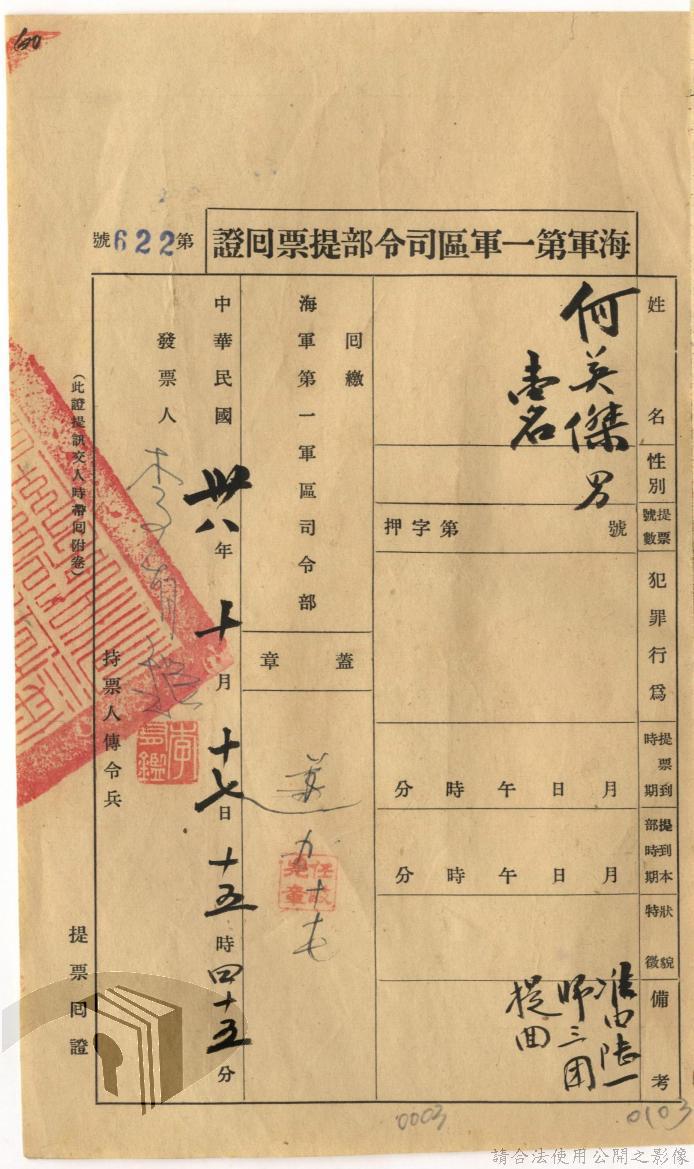 60
海軍第一軍區司令部提票囘證
第622號
姓名
何英傑
壹名
性別
男
提票號數
字第 號
押
犯罪行爲
提票到時期
月 日 午 時 分
提到本部時期
月 日 午 時 分
狀貌特徵
備考
提曲
囘繳
海軍第一軍區司令部
蓋章
中華民國卅八年十月十七日十五時四十五分
發票人
持票人傳令兵
(此證提訊交人時帶囘附卷)
提票囘證
0003
0103
請合法使用公開之影像